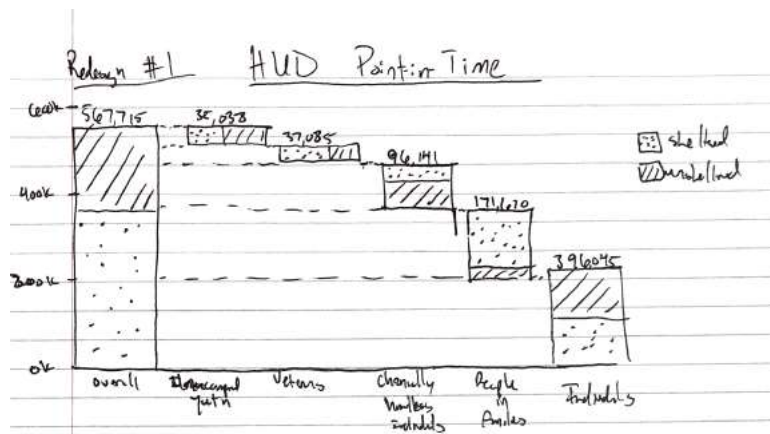 Redesign #1 HUD Point in Time
600k
567,715
35,038
37,085
96,141
171,670
396045
400k
200k
0k
sheltered
unsheltered
overall
Youth
Veterans
Chronically
homeless
individuals
People
in
families
Individuals